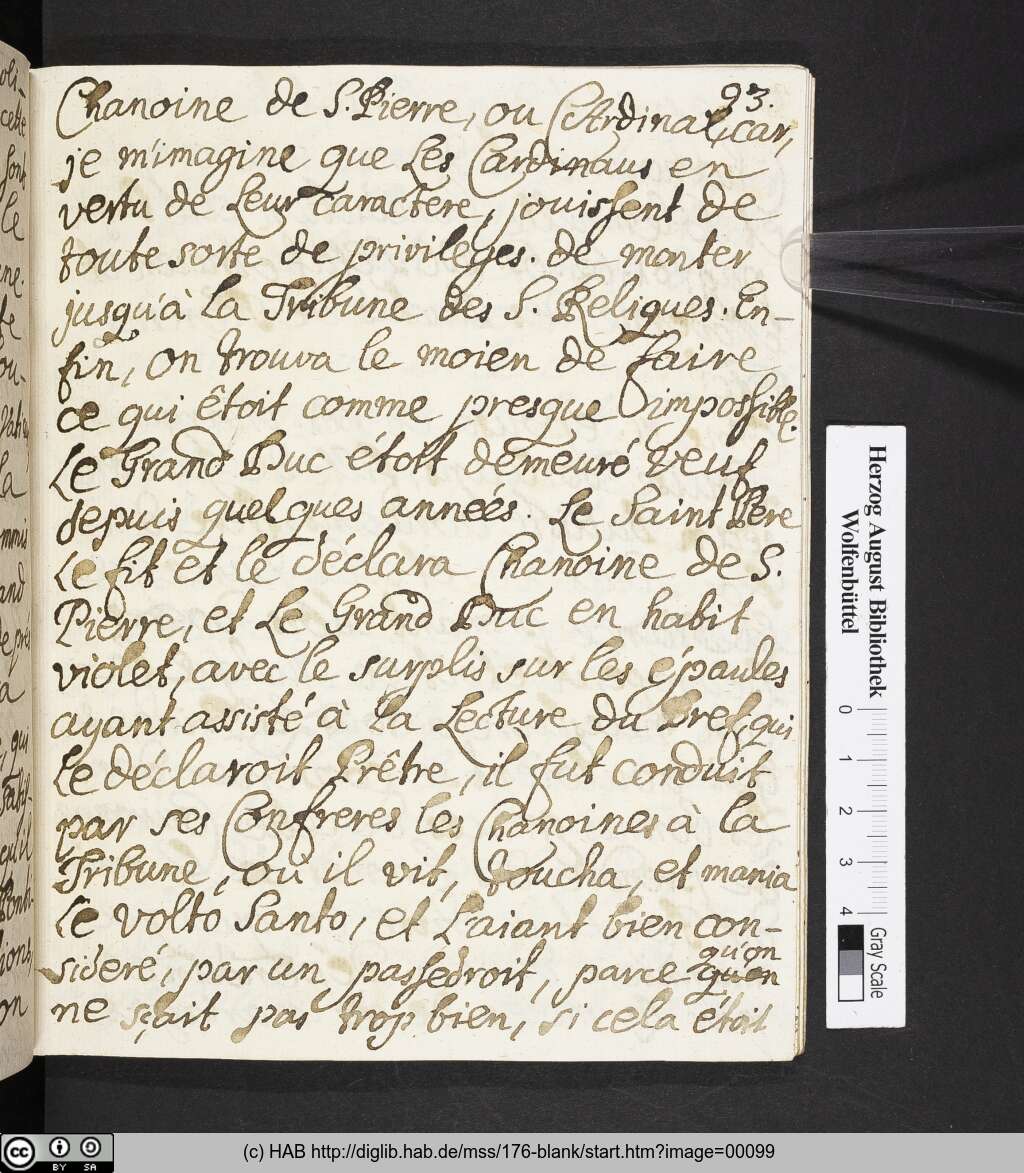 93.
Chanoine de S. Pierre, ou CArdinal, car,
je m'imagine que Les Cardinaus en
vertu de Leur caractere, jouissent de
toute sorte de privileges. de monter
jusqu'à La Tribune des S. Reliques. En-
fin, on trouva le moien de faire
ce qui êtoit comme presque impossible.
Le Grand Duc étoit demeuré veuf
depuis quelques années. Le Saint Pere
Le fit et le déclara Chanoine de S.
Pierre, et Le Grand Duc en habit
violet, avec le surplis sur les épaules
ayant assisté à La Lecture du Bref, qui
Le déclaroit Prêtre, il fut conduit
par ses Confreres les Chanoines à la
Tribune, où il vit, toucha, et mania
Le Volto Santo, et L'aiant bien con-
qu'on
sideré, par un passedroit, parce qu'on
ne sçait pas trop bien, si cela étoit
Herzog August Bibliothek
Wolfenbüttel
0 1 2 3 4
Gray Scale
cc BY SA
(c) HAB http://diglib.hab.de/mss/176-blank/start.htm?image=00099